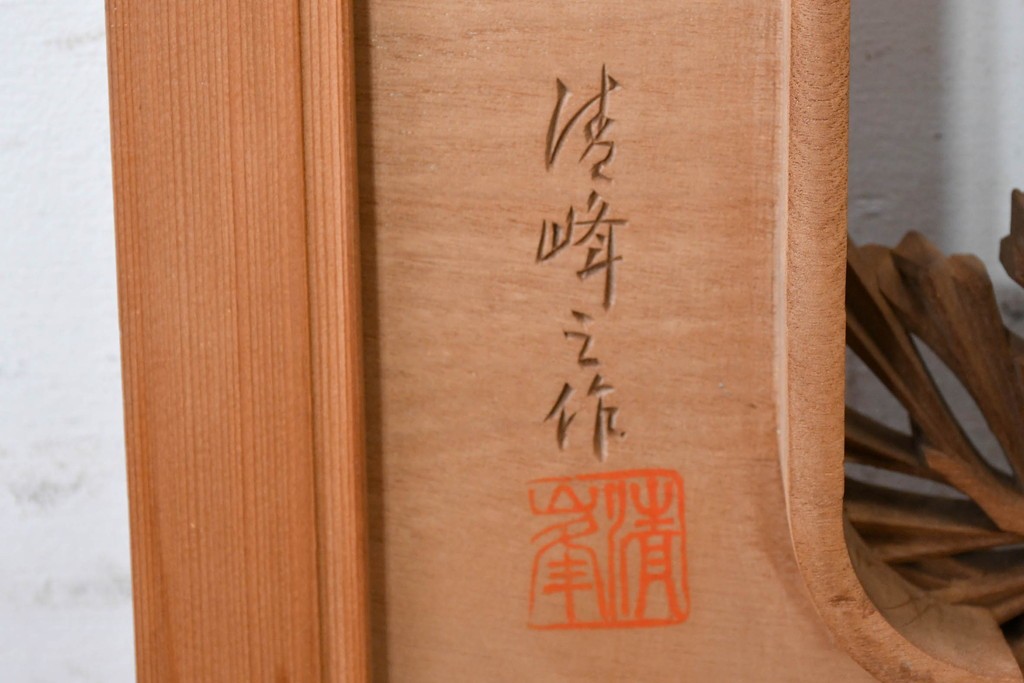 清峰之作
清峯